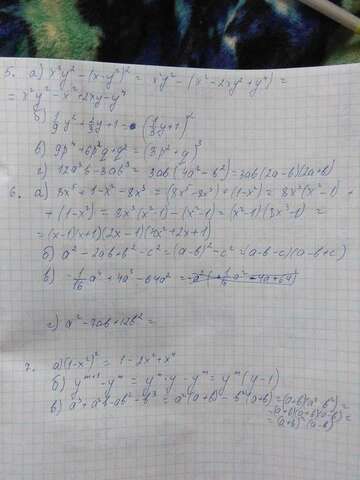 5. а) x²y² - (x-y²)² = x²y² - (x² - 2xy² + y⁴) =
= x²y² - x² + 2xy - y⁴
б) 1/9 y² + 2/3 y + 1 = (1/3 y + 1)²
в) 9p⁴ + 6p²q + q² = (3p² + q)
г) 12a³b - 3ab³ = 3ab(4a² - b²) = 3ab(2a-b)(2a+b)
6. а) 8x⁵ + 1 - x² - 8x³ = (8x⁵ - 8x³) + (1 - x²) = 8x³(x² - 1) +
+ (1 - x²) = 8x³(x² - 1) - (x² - 1) = (x² - 1)(8x³ - 1) =
= (x-1)(x+1)(2x-1)(4x² + 2x + 1)
б) a² - 2ab + b² - c² = (a-b)² - c² = (a-b-c)(a-b+c)
в) -1/16 a⁴ + 4a³ - 64a² =
г) a² - 7ab + 12b² =
7. а) (1-x²)² = 1 - 2x² + x⁴
б) yᵐ⁺¹ - yᵐ = yᵐ · y - yᵐ = yᵐ(y-1)
в) a³ + a²b - ab² - b³ = a²(a+b) - b²(a+b) = (a+b)(a² - b²) =
= (a+b)(a+b)(a-b) =
= (a+b)²(a-b)